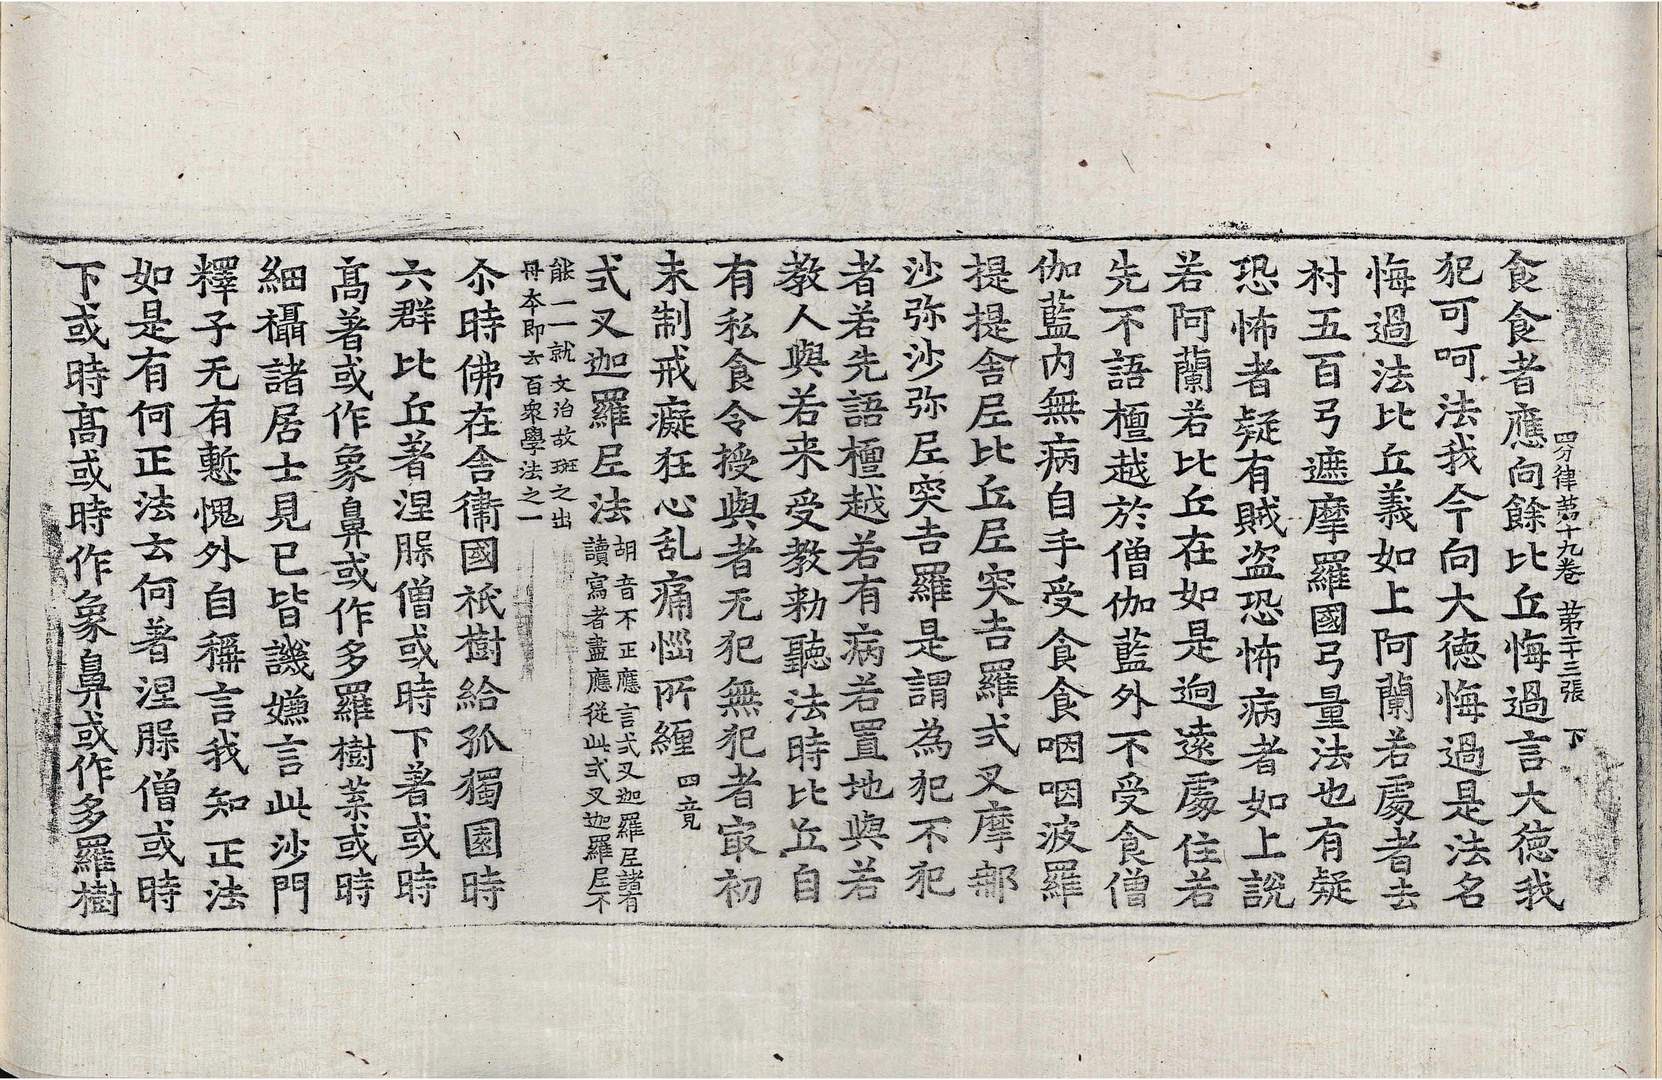 四分律第十九卷 第二十三張 下
食食者應向餘比丘悔過言大德我
犯可呵法我今向大德悔過是法名
悔過法比丘義如上阿蘭若處者去
村五百弓遮摩羅國弓量法也有疑
恐怖者疑有賊盗恐怖病者如上說
若阿蘭若比丘在如是迥遠處住若
先不語檀越於僧伽藍外不受食僧
伽藍内無病自手受食食咽咽波羅
提提舍尼比丘尼突吉羅式叉摩那
沙弥沙弥尼突吉羅是謂為犯不犯
者若先語檀越若有病若置地與若
教人與若来受教勑聽法時比丘自
有私食令授與者无犯無犯者㝡初
未制戒癡狂心乱痛惱所纏 四竟
式叉迦羅尼法 胡音不正應言式叉迦羅尼諸有
讀寫者盡應從此式叉迦羅尼不
能一一就文治故班之出
丹本即云百衆學法之一
尒時佛在舍衛國祇樹給孤獨園時
六群比丘著涅脲僧或時下著或時
髙著或作象鼻或作多羅樹葉或時
細襵諸居士見已皆譏嫌言此沙門
釋子无有慙愧外自稱言我知正法
如是有何正法云何著涅脲僧或時
下或時髙或時作象鼻或作多羅樹